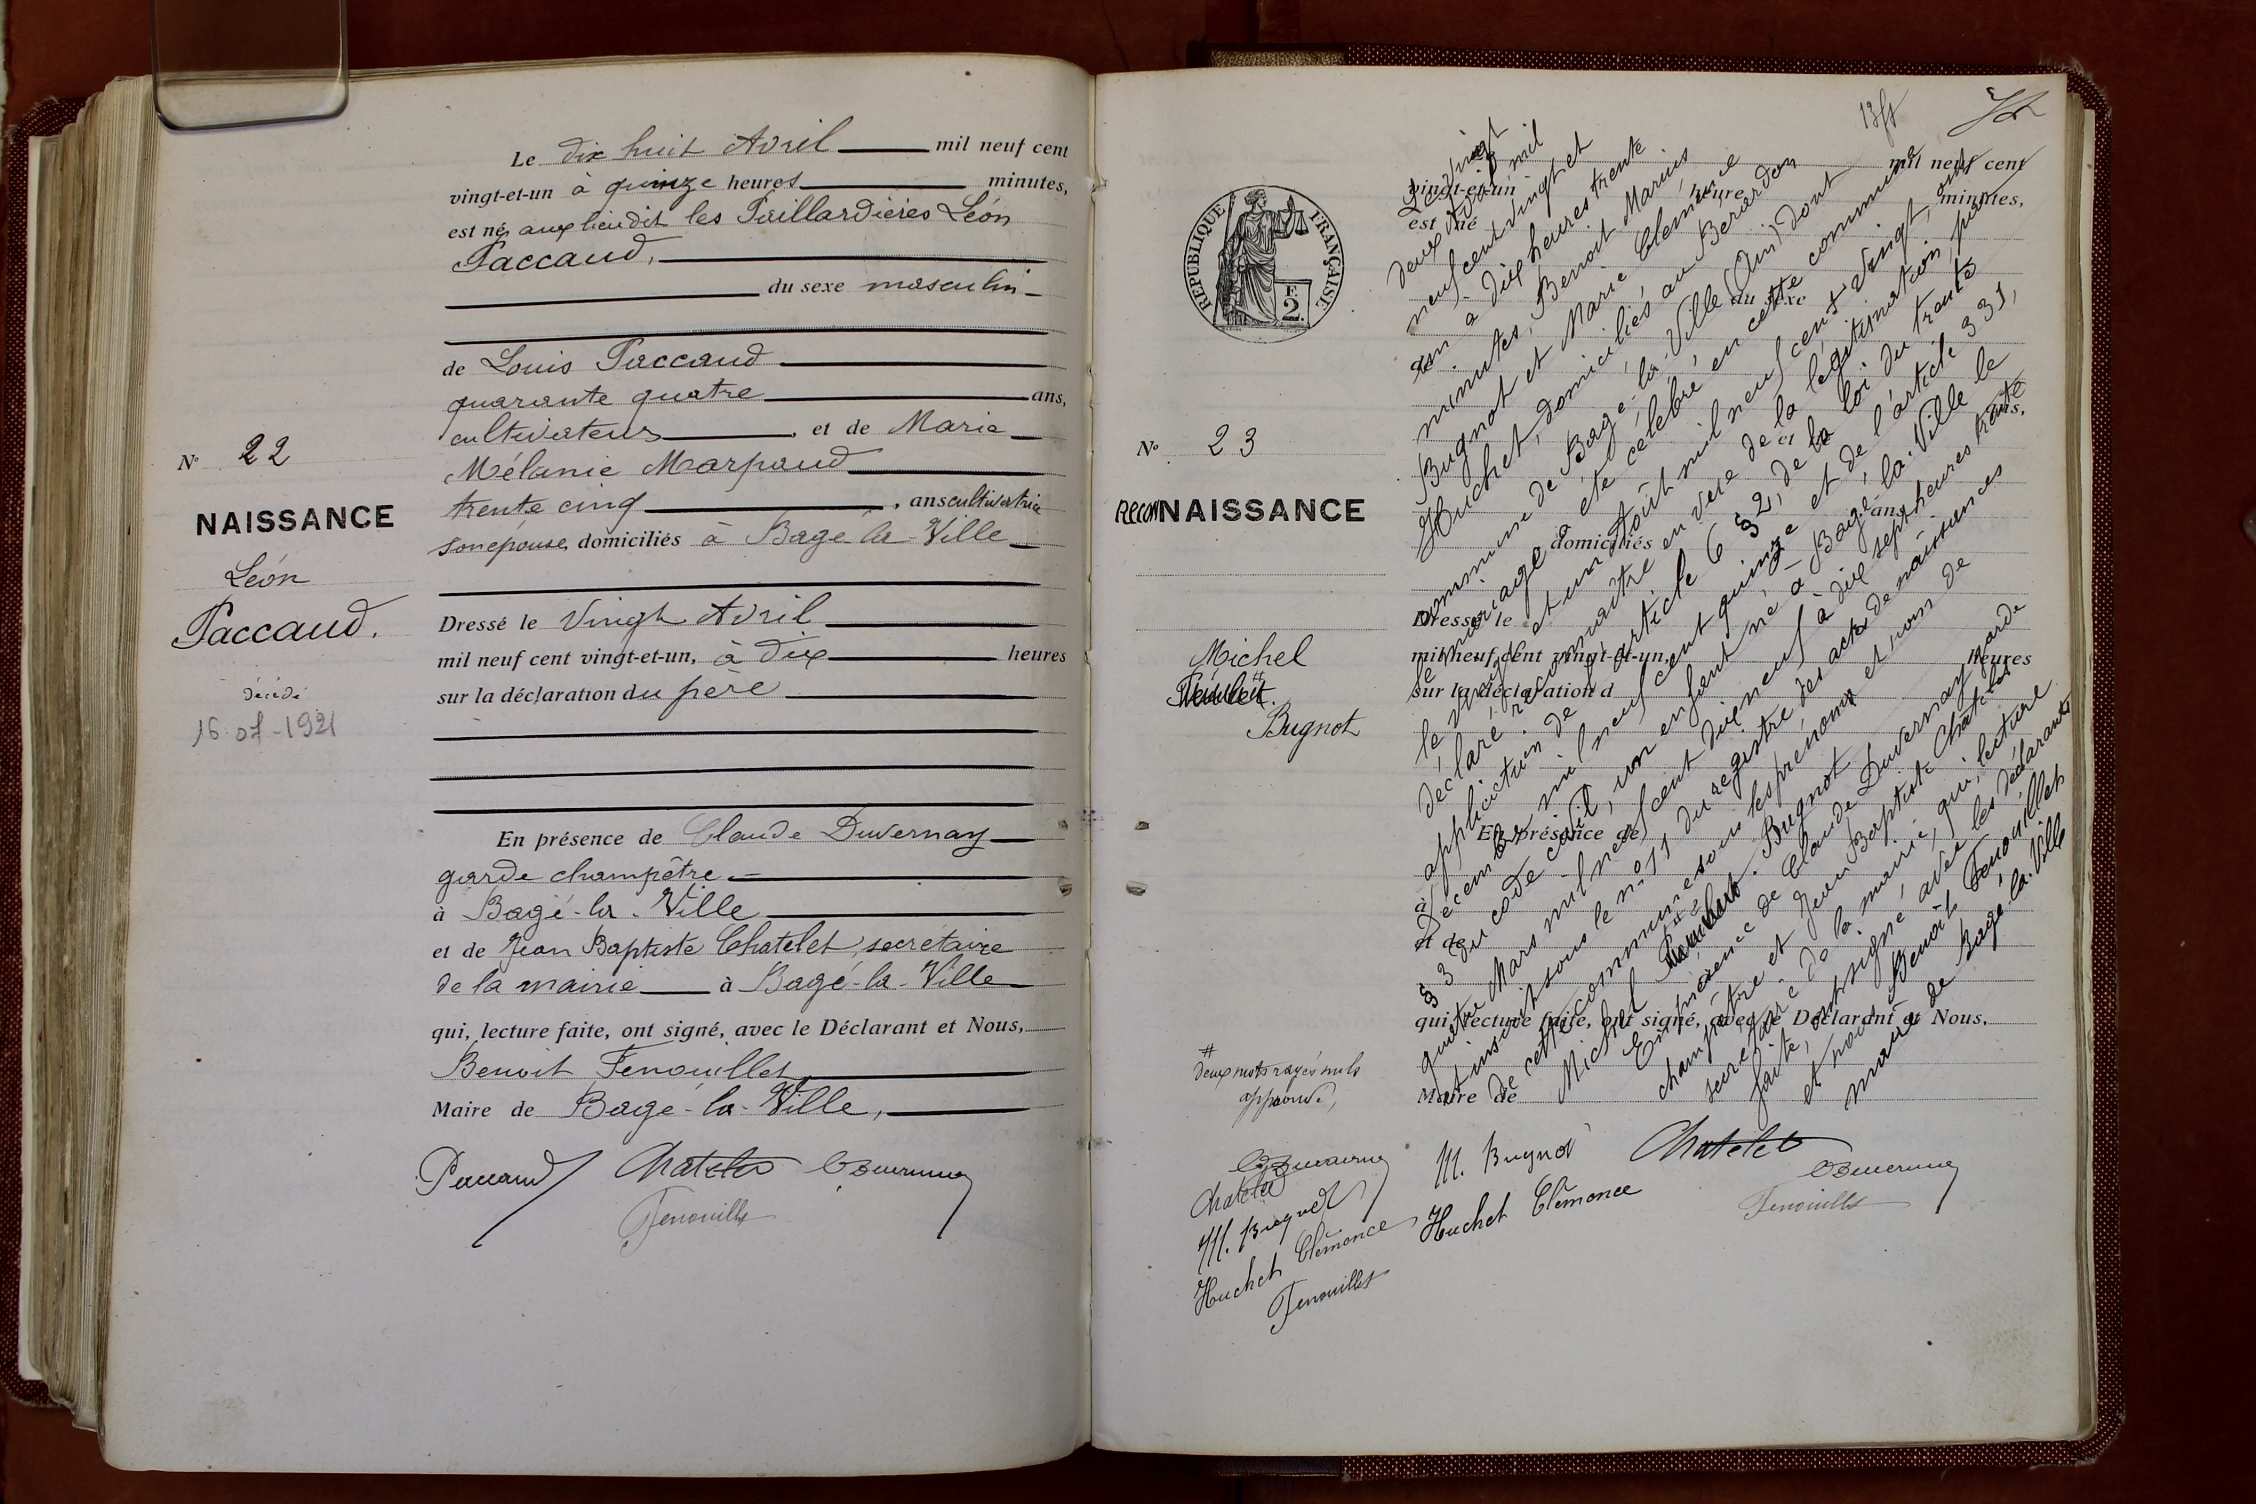 Le dix huit Avril mil neuf cent
vingt-et-un à quinze heures minutes,
est né, aux lieudit les Paillardières Léon
Paccaud,
du sexe masculin
de Louis Paccaud
quarante quatre ans,
cultivateur, et de Marie
Mélanie Marpaud
trente cinq, ans cultivatrice
son épouse, domiciliés à Bagé-la-Ville
Dressé le Vingt Avril
mil neuf cent vingt-et-un, à dix heures
sur la déclaration du père
En présence de Claude Duvernay
garde champêtre
à Bagé-la-Ville
et de Jean Baptiste Chatelet, secrétaire
de la mairie à Bagé-la-Ville
qui, lecture faite, ont signé, avec le Déclarant et Nous,
Benoit Fenouillet
Maire de Bagé-la-Ville,
Paccaud Chatelet Duvernay
Fenouillet
N° 22
NAISSANCE
Léon
Paccaud.
décédé
16-07-1921
RÉPUBLIQUE FRANÇAISE
2
N° 23
RECONNAISSANCE
Michel
Bugnot
#
deux mots rayés nuls
approuvé,
Duvernay
Chatelet
M. Bugnot
Huchet Clémence
Fenouillet
mil neuf cent
vingt-et-un heures minutes,
est né
du sexe
et de
ans,
domiciliés
Dressé le
mil neuf cent vingt-et-un, heures
sur la déclaration d
En présence de
et de
qui, lecture faite, ont signé, avec le Déclarant et Nous,
Maire de
Le vingt
deux Avril mil
neuf cent vingt et
un à dix heures trente
minutes, Benoit Marius
Bugnot et Marie Clémence
Huchet, domiciliés au Berardon
commune de Bagé-la-Ville (Ain) dont
le mariage a été célébré en cette commune
le vingt et un Août mil neuf cent vingt, ont
déclaré reconnaître en vue de la légitimation, par
application de l'article 6 § 2, de la loi du trente
décembre mil neuf cent quinze et de l'article 331,
§ 3 du code civil, un enfant né à Bagé-la-Ville le
quatre Mars mil neuf cent dix neuf à dix sept heures trente
et inscrit sous le n° 11 du registre des actes de naissances
de cette commune sous les prénoms et nom de
Michel Bugnot
En présence de Claude Duvernay garde
champêtre et Jean Baptiste Chatelet
secrétaire de la mairie, qui, lecture
faite, ont signé avec les déclarants
et nous Benoit Fenouillet
maire de Bagé-la-Ville
M. Bugnot Chatelet
Huchet Clémence Duvernay
Fenouillet